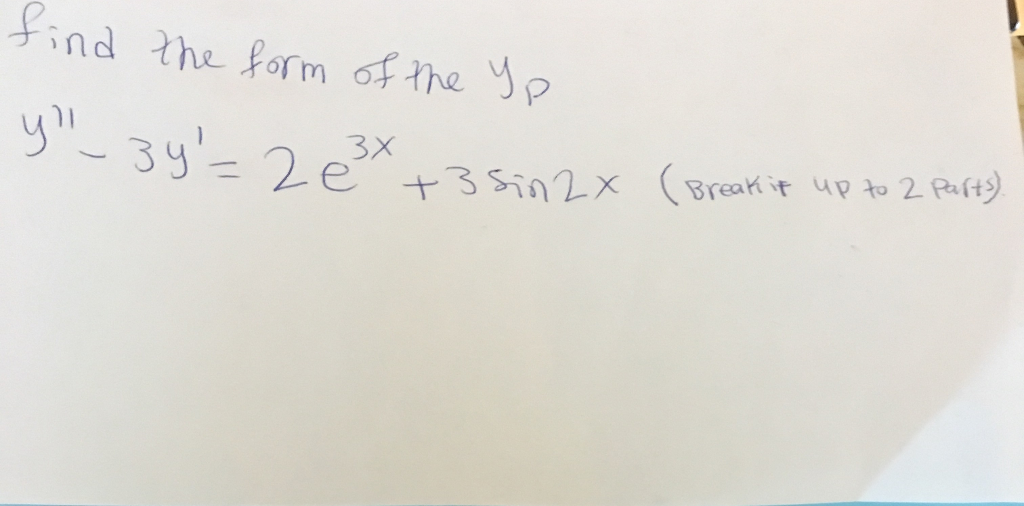 find the form of the yp
y'' - 3y' = 2e^3x + 3 sin2x (Break it up to 2 parts).